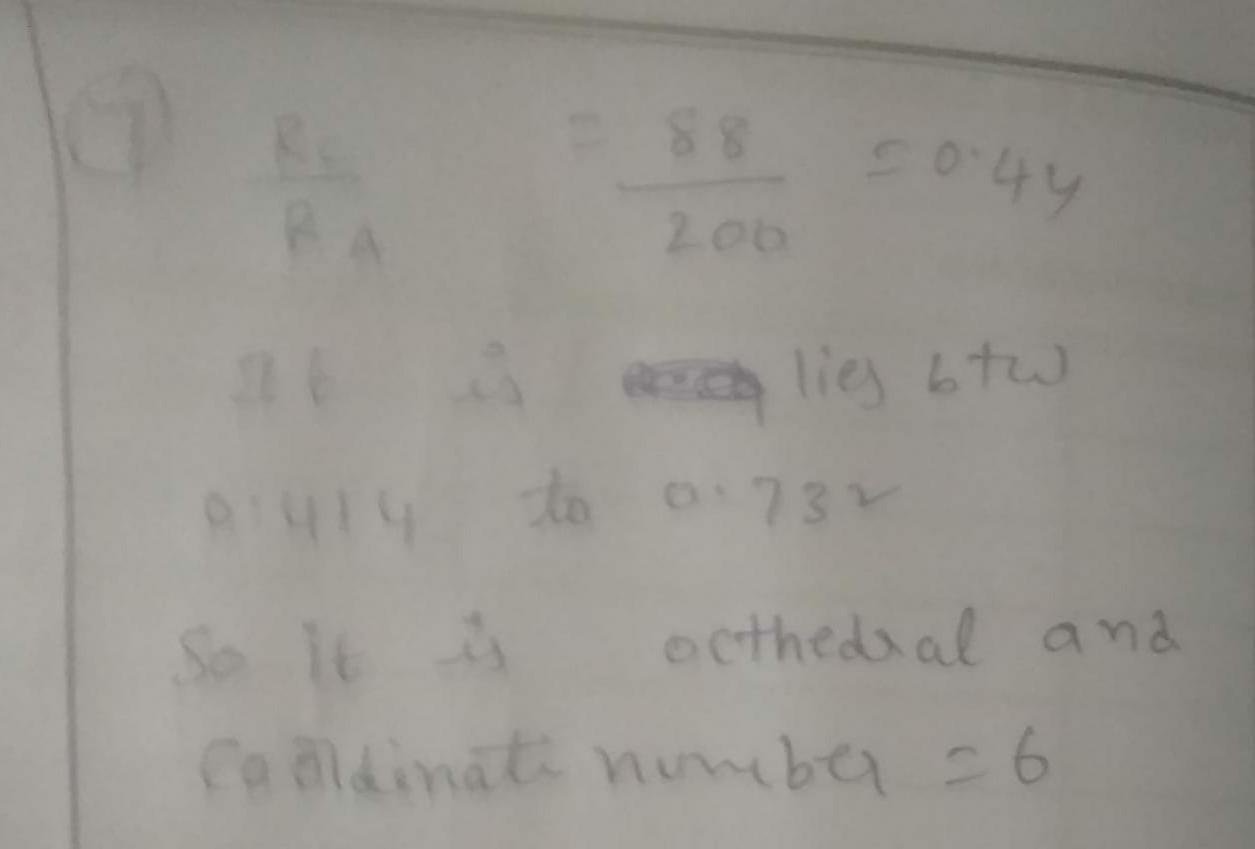 7 Rc = 88 = 0.44
RA 200
It is lies btw
0.414 to 0.732
So it is octhedral and
Coordinate number = 6